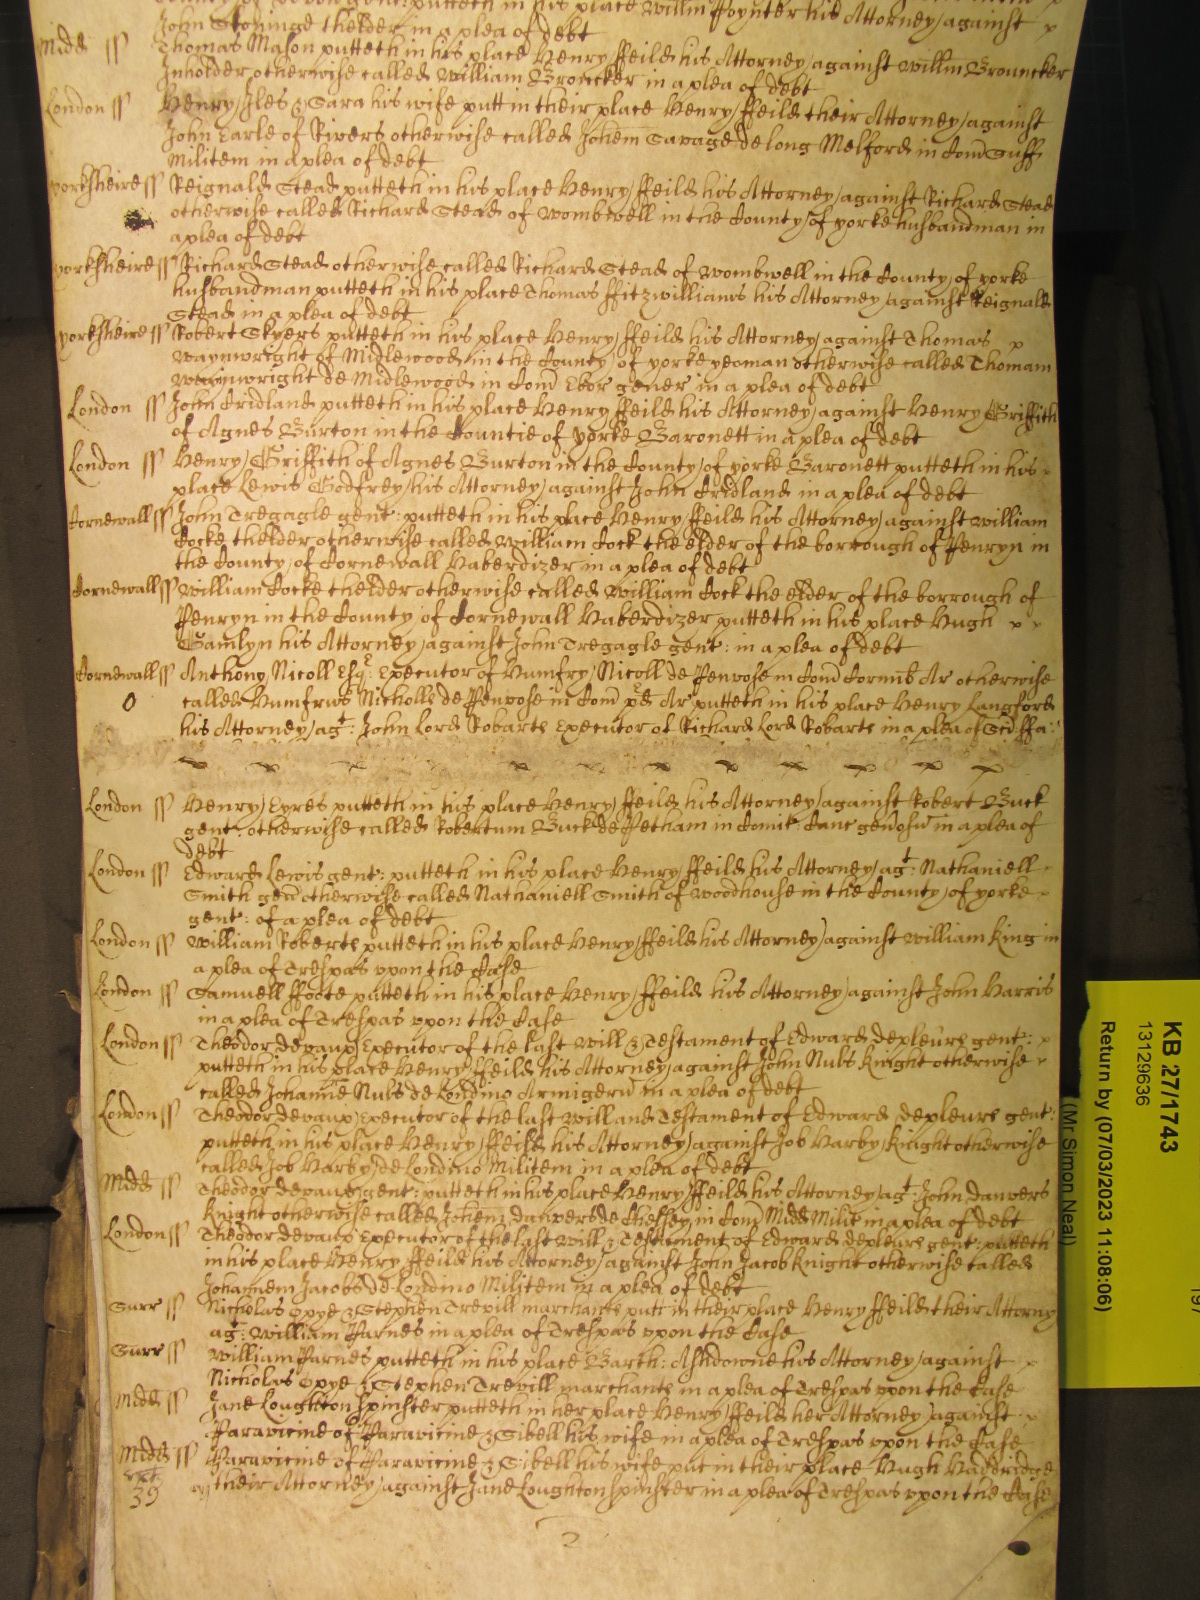 County of Devon gent: putteth in his place Willm Poynter his Attorney against
John Stoninge thelder in a plea of debt
Midd ss Thomas Mason putteth in his place Henry ffeild his Attorney against Willm Brouncker
Inholder otherwise called William Broncker in a plea of debt
London ss Henry Iles & Sara his wife putt in their place Henry ffeild their Attorney against
John Earle of Rivers otherwise called Johem Savage de long Melford in Com Suff
Militem in a plea of debt
Yorksheire ss Reignald Stead putteth in his place Henry ffeild his Attorney against Richard Stead
otherwise called Richard Stead of Wombwell in the County of yorke husbandman in
a plea of debt
Yorksheire ss Richard Stead otherwise called Richard Stead of Wombwell in the County of yorke
husbandman putteth in his place Thomas ffitzwilliams his Attorney against Reignald
Stead in a plea of debt
Yorksheire ss Robert Skyers putteth in his place Henry ffeild his Attorney against Thomas
Waynwright of Midlewood in the County of yorke yeoman otherwise called Thomam
Waynwright de Midlewood in Com Ebor gener in a plea of debt
London ss John Cridland putteth in his place Henry ffeild his Attorney against Henry Griffith
of Agnes Burton in the Countie of Yorke Baronett in a plea of debt
London ss Henry Griffith of Agnes Burton in the County of yorke Baronett putteth in his
place Lewis Godfrey his Attorney against John Cridland in a plea of debt
Cornewall ss John Tregagle gent: putteth in his place Henry ffeild his Attorney against William
Cocke thelder otherwise called William Cock the elder of the borrough of Penryn in
the County of Cornewall Haberdizer in a plea of debt
Cornewall ss William Cocke thelder otherwise called William Cock the elder of the borrough of
Penryn in the County of Cornewall Haberdizer putteth in his place Hugh
Gamlyn his Attorney against John Tregagle gent: in a plea of debt
Cornewall ss Anthony Nicoll Esqr: Executor of Humfry Nicoll de Penvose in Com Cornub Ar otherwise
called Humfrus Nicholls de Penvose in Com pred Ar putteth in his place Henry Langford
his Attorney agt: John Lord Robarts Executor of Richard Lord Robarts in a plea of Sci: ffa:
London ss Henry Eyres putteth in his place Henry ffeild his Attorney against Robert Buck
gent: otherwise called Robertum Buck de Petham in Comit Canc generosu in a plea of
debt
London ss Edward Lewis gent: putteth in his place Henry ffeild his Attorney agt: Nathaniell
Smith gen otherwise called Nathaniell Smith of Woodhouse in the County of yorke
gent: of a plea of debt
London ss William Roberts putteth in his place Henry ffeild his Attorney against William King in
a plea of Trespas upon the Case
London ss Samuell ffoote putteth in his place Henry ffeild his Attorney against John Harris
in a plea of Trespas upon the Case
London ss Theodor devaux Executor of the last will & Testament of Edward depleurs gent:
putteth in his place Henry ffeild his Attorney against John Nuls Knight otherwise
called Johanne Nuls de Londino Armigeru in a plea of debt
London ss Theodor devaux Executor of the last will and Testament of Edward depleurs gent:
putteth in his place Henry ffeild his Attorney against Job Harby Knight otherwise
called Job Harby de Londino Militem in a plea of debt
Midd ss Theodor devaux gent: putteth in his place Henry ffeild his Attorney agt: John Danvers
Knight otherwise called Johem Danvers de Chelsey in Com Midd Milit in a plea of debt
London ss Theodor devaux Executor of the last will & Testament of Edward depleurs gent: putteth
in his place Henry ffeild his Attorney against John Jacob Knight otherwise called
Johannem Jacob de Londino Militem in a plea of debt
Surr ss Nicholas Opye & Stephen Trevill marchants putt in their place Henry ffeild their Attorny
agt: William Parnes in a plea of Trespas upon the Case
Surr ss William Parnes putteth in his place Barth: Ashdowne his Attorney against
Nicholas Opye & Stephen Trevill marchants in a plea of Trespas upon the Case
Midd ss Jane Loughton spinster putteth in her place Henry ffeild her Attorney against
Paravicine of Paravicine & Sibell his wife in a plea of Trespas upon the Case
Midd ss Paravicine of Paravicine & Sibell his wife put in their place Hugh
their Attorney against Jane Loughton spinster in a plea of Trespas upon the Case
39
KB 27/1743
13129636
Return by (07/03/2023 11:08:06)
(Mr. Simon Neal)
197